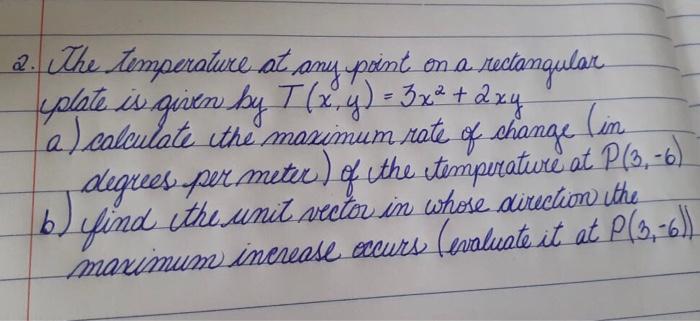 2. The temperature at any point on a rectangular
plate is given by T(x,y) = 3x² + 2xy
a) calculate the maximum rate of change (in
degrees per meter) of the temperature at P(3,-6)
b) find the unit vector in whose direction the
maximum increase occurs (evaluate it at P(3,-6))